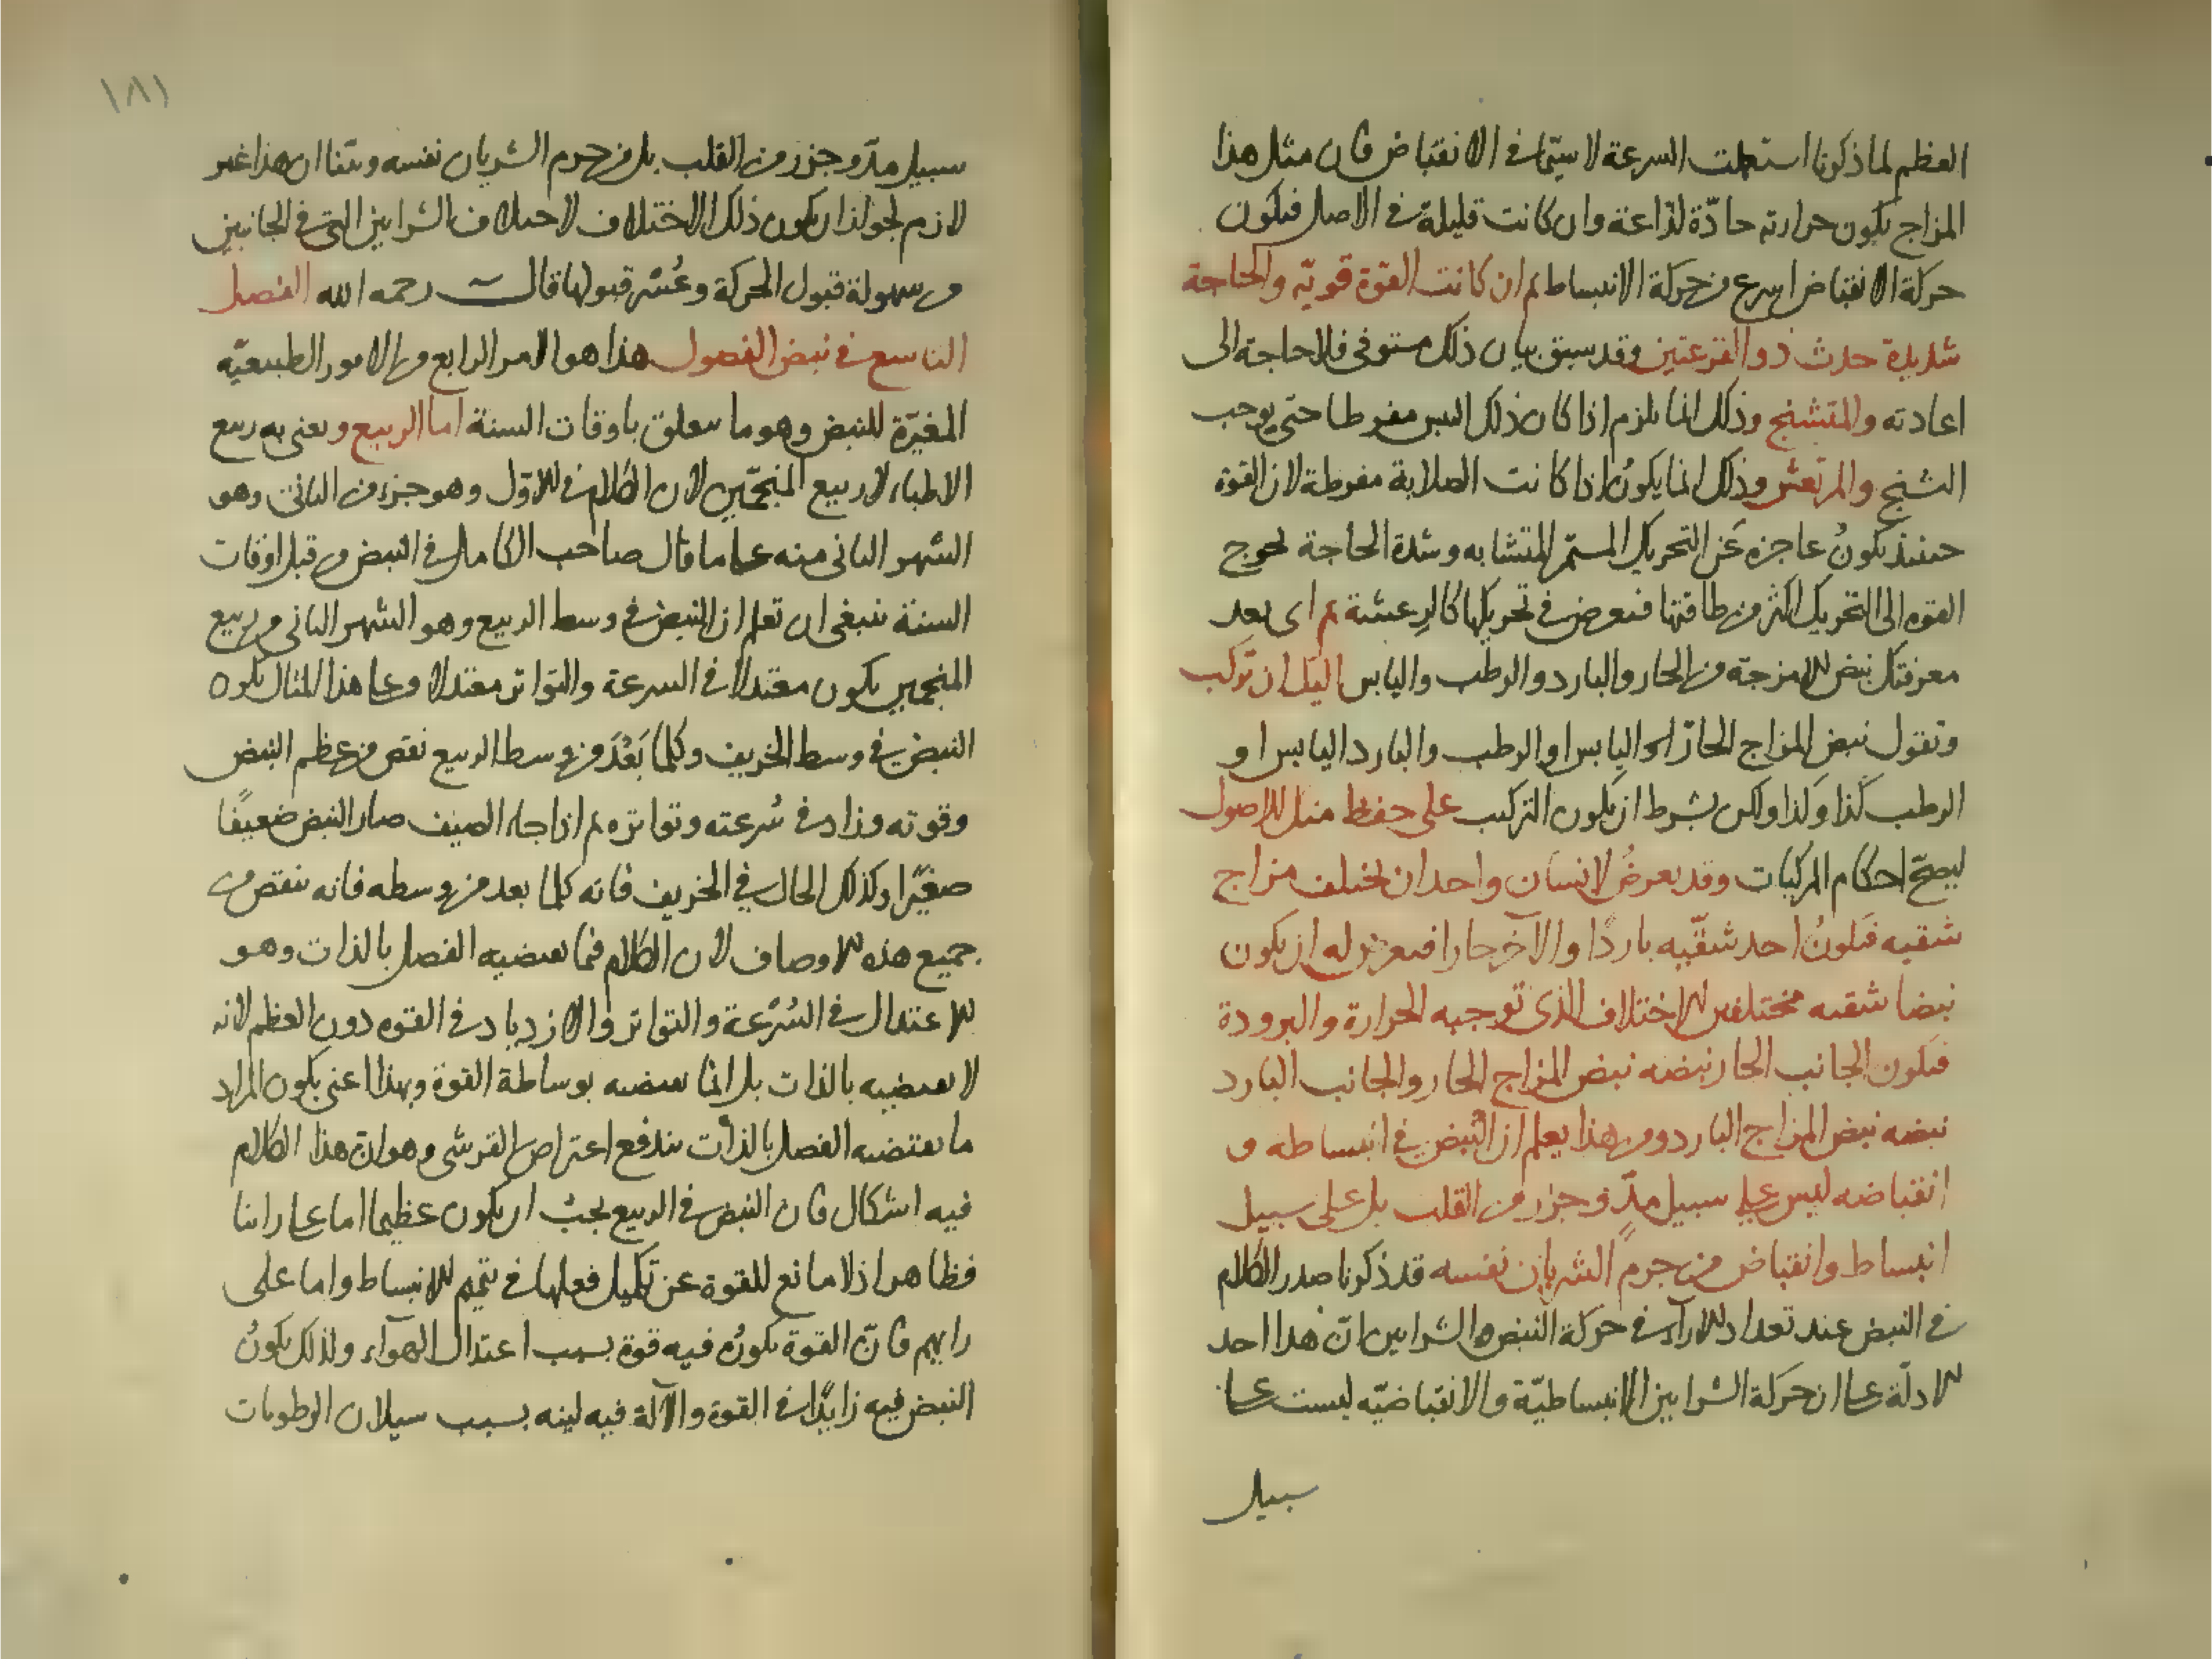 العظم لما ذكرنا استعملت السرعة لا سيّما في الانقباض فان مثل هذا
المزاج يكون حرارته حادّة لذّاعة وان كانت قليلة في الاصل فيكون
حركة الانقباض اسرع من حركة الانبساط ثم ان كانت القوّة قويّه والحاجة
شديدة حدث ذو القرعتين وقد سبق بيان ذلك مستوفى فلا حاجة الى
اعادته والمتشنج وذلك انما يلزم اذا كان ذلك اليبس مفرطا حتى يوجب
الشنج والمرتعش وذلك انما يكون اذا كانت الصلابة مفرطة لان القوة
حينئذ يكونُ عاجزه عَن التحريك المستمرّ المتشابه وشدة الحاجة تحوج
القوه الى التحريك اكثر من طاقتها فيعرض في تحريكها كالرعشة ثم اى بعد
معرفتك نبض الامزجة من الحار والبارد والرطب واليابس اليك ان تركب
وتقول نبض المزاج الحارّ او اليابس او الرطب والبارد اليابس او
الرطب كذا وكذا ولكن بشرط ان يكون التركيب على حفظ منك للاصول
ليصحّ احكام المركبات وقد يعرضُ لانسان واحد ان يختلف مزاج
شقيه فيكونُ احد شقّيه باردًا والآخر حارا فيعرض له ان يكون
نبضا شقيه مختلفين الاختلاف الذى توجبه الحرارة والبرودة
فيكون الجانب الحار نبضه نبض المزاج الحار والجانب البارد
نبضه نبض المزاج البارد ومن هذا يعلم ان النبض في انبساطه و
انقباضه ليس على سبيل مدّ وجزر من القلب بل على سبيل
انبساط وانقباض من جرم الشريان نفسه قد ذكرنا صدر الكلام
في النبض عند تعداد الاراء في حركة النبض والشرايين انّ هذا احد
الادلّة على ان حركة الشرايين الانبساطيّة والانقباضيّه ليست على
سبيل
١٨١
سبيل مدّ وجزر من القلب بل من جرم الشريان نفسه وبيّنا ان هذا غير
لازم لجواز ان يكون ذلك الاختلاف لاختلاف الشرايين التى في الجانبين
من سهولة قبول الحركة وعُسْر قبولها قال رحمه الله الفصل
التاسع في نبض الفصول هذا هو الامر الرابع من الامور الطبيعيّه
المغيّرة للنبض وهو ما يتعلق باوقات السنة اما الربيع ويعنى به ربيع
الاطباء لا ربيع المنجمّين لان الكلام في الاوّل وهو جزء من الثانى وهو
الشهر الثانى منه على ما قال صاحب الكامل في النبض من قبل اوقات
السنة ينبغى ان تعلم ان النبض في وسط الربيع وهو الشهر الثانى من ربيع
المنجمين يكون معتدلا في السرعة والتواتر معتدلا وعلى هذا المثال يكون
النبض في وسط الخريف وكلما بَعُدَ من وسط الربيع نقص من عظم النبض
وقوته وزاد في سُرعته وتواتره ثم اذا جاء الصيف صار النبض ضعيفًا
صغيرًا وكذلك الحال في الخريف فانه كلما بعد من وسطه فانه ينقص من
جميع هذه الاوصاف لان الكلام فيما يقتضيه الفصل بالذات وهو
الاعتدال في السُرعة والتواتر والازدياد في القوه دون العظم لانه
لا يقتضيه بالذات بل انما يقتضيه بوساطة القوة وبهذا اعنى بكون المراد
ما يقتضيه الفصل بالذات يندفع اعتراض القرشى وهو ان هذا الكلام
فيه اشكال فان النبض في الربيع يجب ان يكون عظيما اما على راينا
فظاهر اذ لا مانع للقوة عن تكميل فعلها في تتميم الانبساط واما على
رايهم فانّ القوة يكونُ فيه قوة بسبب اعتدال الهواء ولذلك يكونُ
النبض فيه زايدًا في القوة والآلة فيه لينه بسبب سيلان الرطوبات